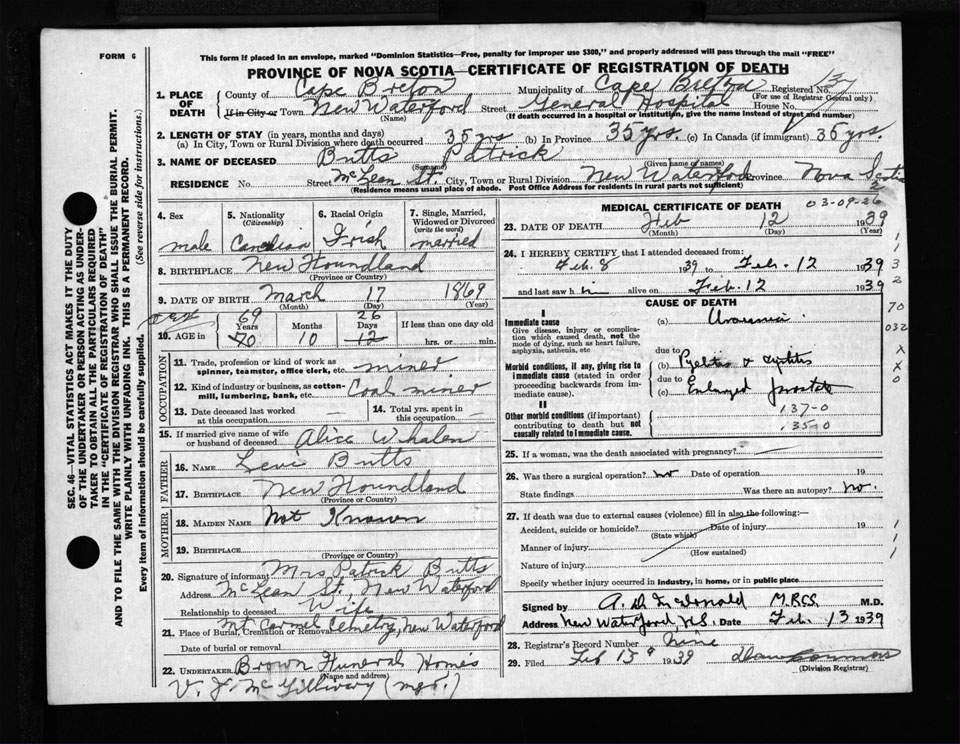 FORM 6
This form if placed in an envelope, marked "Dominion Statistics—Free, penalty for improper use $300," and properly addressed will pass through the mail "FREE"
PROVINCE OF NOVA SCOTIA—CERTIFICATE OF REGISTRATION OF DEATH
1. PLACE OF DEATH
County of Cape Breton Municipality of Cape Breton Registered No. 137
(For use of Registrar General only)
If in City or Town New Waterford Street General Hospital House No.
(Name) (If death occurred in a hospital or institution, give the name instead of street and number)
2. LENGTH OF STAY (in years, months and days)
(a) In City, Town or Rural Division where death occurred 35 yrs (b) In Province 35 yrs. (c) In Canada (if immigrant) 35 yrs.
3. NAME OF DECEASED Butts Patrick
(Surname) (Given name or names)
RESIDENCE No. Street McLean St. City, Town or Rural Division New Waterford Province Nova Scotia
(Residence means usual place of abode. Post Office Address for residents in rural parts not sufficient)
2
4. Sex
male
5. Nationality (Citizenship)
Canadian
6. Racial Origin
Irish
7. Single, Married, Widowed or Divorced (write the word)
married
8. BIRTHPLACE New Foundland
(Province or Country)
9. DATE OF BIRTH March 17 1869
(Month) (Day) (Year)
69 26
10. AGE in Years Months Days If less than one day old
70 10 12 hrs. or min.
OCCUPATION
11. Trade, profession or kind of work as spinner, teamster, office clerk, etc. miner
12. Kind of industry or business, as cotton-mill, lumbering, bank, etc. Coal miner
13. Date deceased last worked at this occupation
14. Total yrs. spent in this occupation
15. If married give name of wife or husband of deceased Alice Whalen
FATHER
16. NAME Levi Butts
17. BIRTHPLACE New Foundland
(Province or Country)
MOTHER
18. MAIDEN NAME Not Known
19. BIRTHPLACE
(Province or Country)
20. Signature of informant Mrs Patrick Butts
Address McLean St., New Waterford
Relationship to deceased Wife
21. Place of Burial, Cremation or Removal Mt Carmel Cemetry, New Waterford
Date of burial or removal
22. UNDERTAKER Brown Funeral Homes
(Name and address)
V. J. McGillivary (mgr.)
MEDICAL CERTIFICATE OF DEATH
03-09-26
23. DATE OF DEATH Feb 12 1939
(Month) (Day) (Year)
24. I HEREBY CERTIFY that I attended deceased from:
Feb. 8 1939 to Feb. 12 1939
and last saw him alive on Feb. 12 1939
CAUSE OF DEATH
I
Immediate cause
Give disease, injury or complication which caused death, not the mode of dying, such as heart failure, asphyxia, asthenia, etc
(a) Uraemia
due to
Morbid conditions, if any, giving rise to immediate cause (stated in order proceeding backwards from immediate cause).
(b) Pyelitis & Cystitis
due to
(c) Enlarged prostate
II
Other morbid conditions (if important) contributing to death but not causally related to immediate cause.
137-0
135-0
25. If a woman, was the death associated with pregnancy?
26. Was there a surgical operation? no Date of operation 19
State findings Was there an autopsy? no.
27. If death was due to external causes (violence) fill in also the following:—
Accident, suicide or homicide? Date of injury 19
(State which)
Manner of injury
(How sustained)
Nature of injury
Specify whether injury occurred in industry, in home, or in public place
Signed by A. D. McDonald M.R.C.S. M.D.
Address New Waterford, N.S. Date Feb. 13 1939
28. Registrar's Record Number Nine
29. Filed Feb 15 1939
(Division Registrar)
1
1
3
2
70
032
X
X
0
1
1
1
SEC. 46—VITAL STATISTICS ACT MAKES IT THE DUTY
OF THE UNDERTAKER OR PERSON ACTING AS UNDER-
TAKER TO OBTAIN ALL THE PARTICULARS REQUIRED
IN THE "CERTIFICATE OF REGISTRATION OF DEATH"
AND TO FILE THE SAME WITH THE DIVISION REGISTRAR WHO SHALL ISSUE THE BURIAL PERMIT.
WRITE PLAINLY WITH UNFADING INK. THIS IS A PERMANENT RECORD.
Every item of information should be carefully supplied. (See reverse side for instructions.)